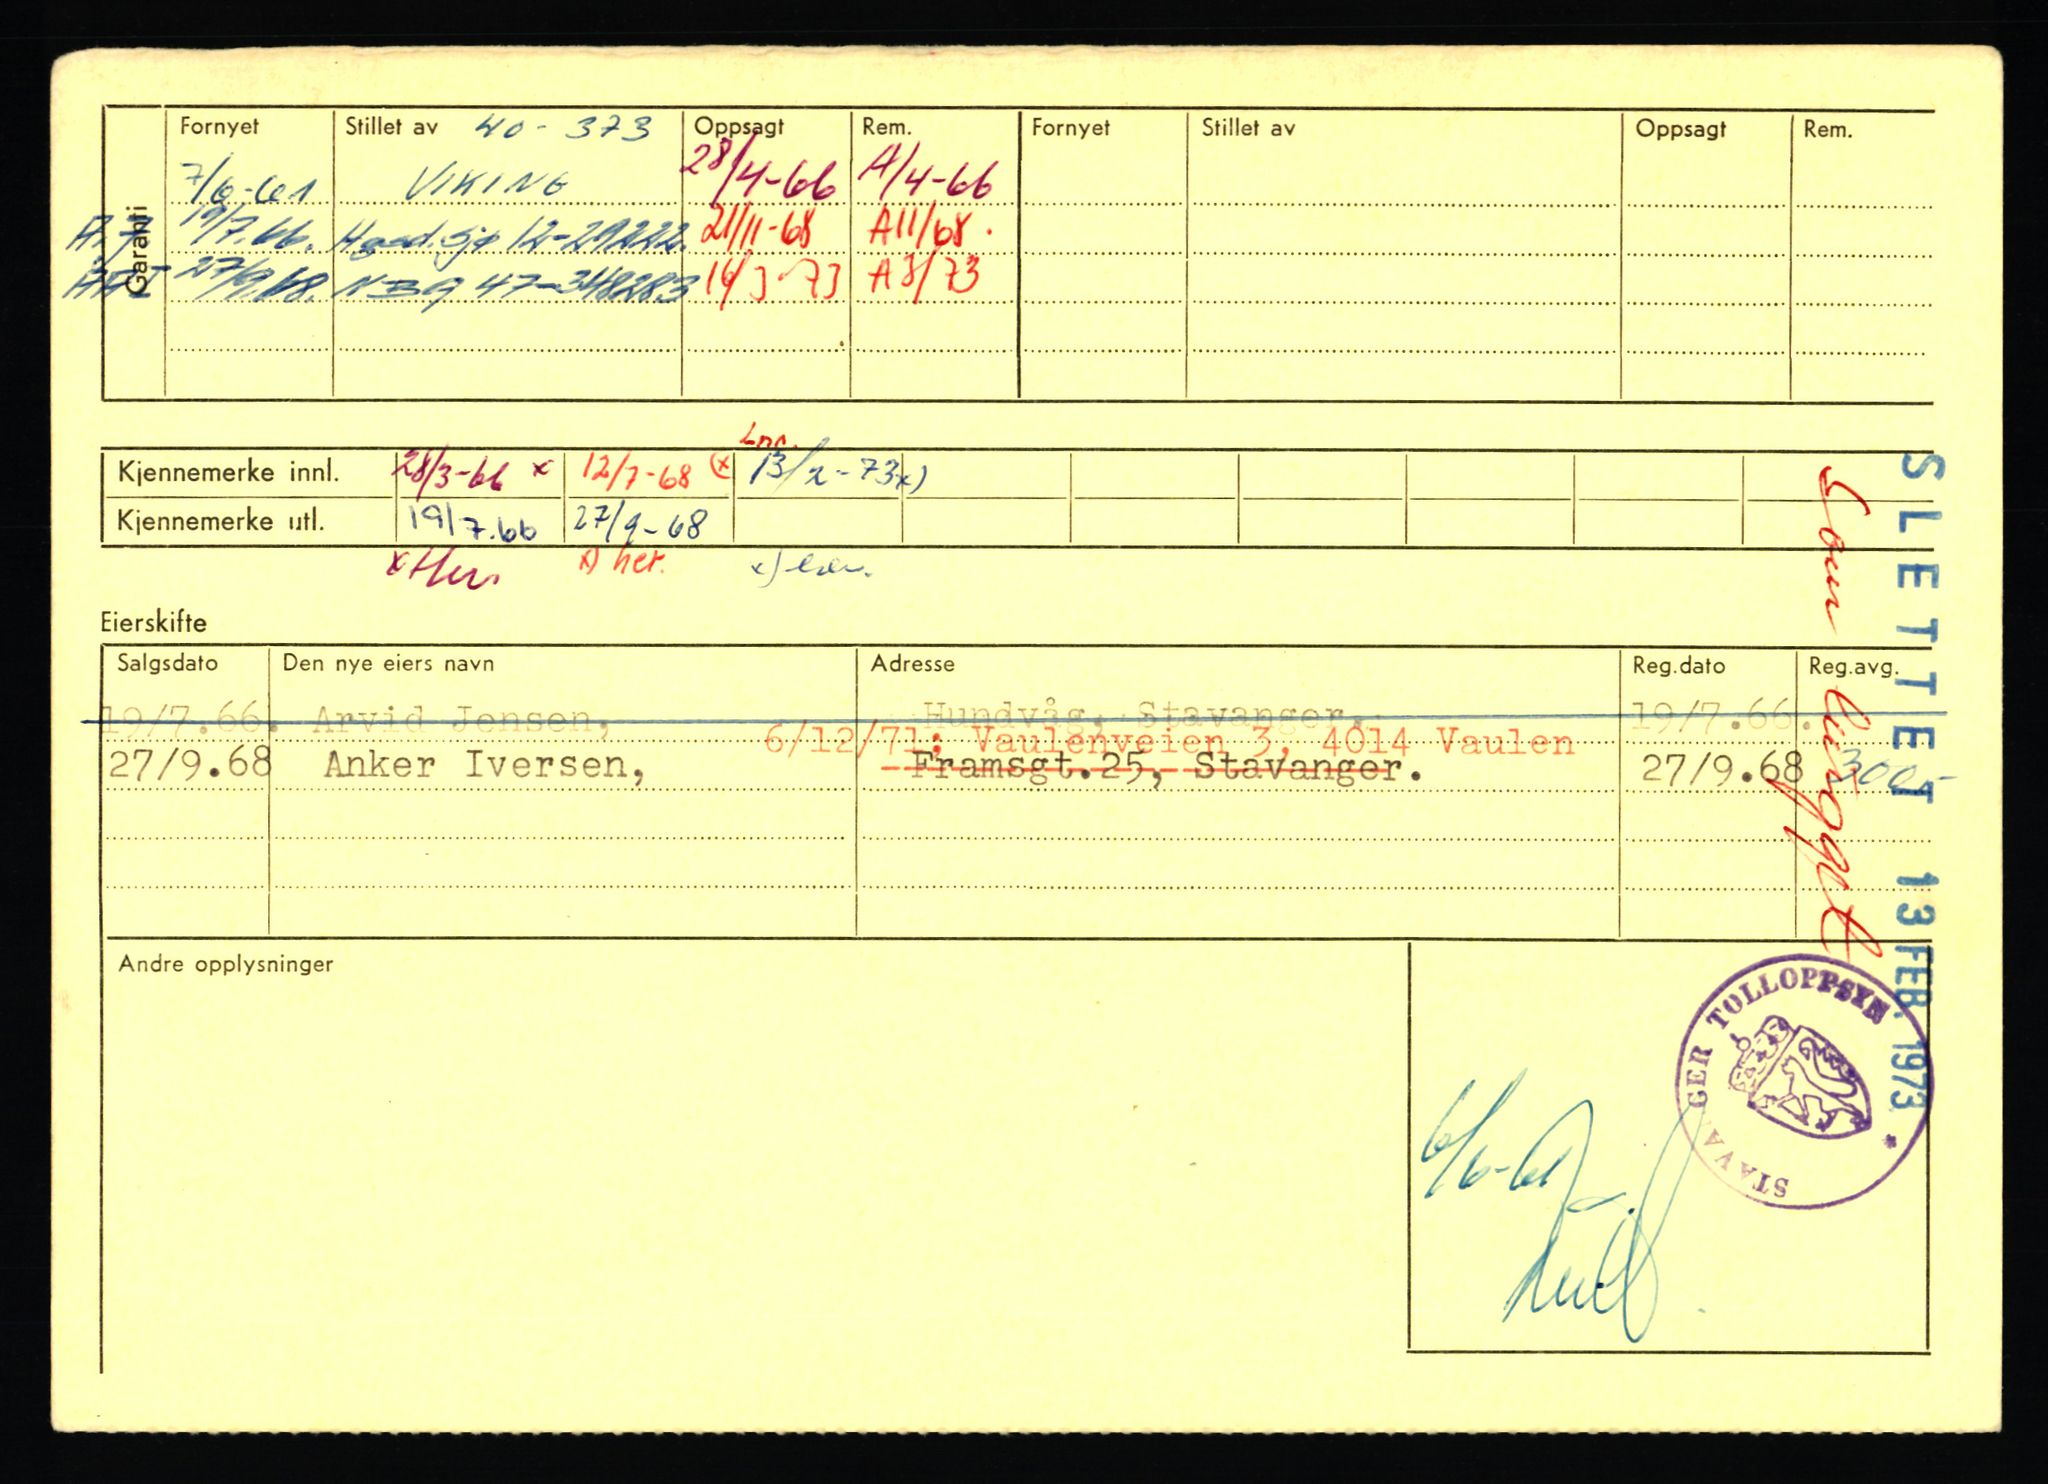 Fornyet Stillet av 40-373 Oppsagt Rem. Fornyet Stillet av Oppsagt Rem.
Garanti
7/6-61 VIKING 28/4-66 A/4-66
19/7.66. 12-29222. 21/11-68 A11/68.
27/9.68. 47-348283 A3/73
Kjennemerke innl. 28/3-66 x 12/7-68 (x 13/2-73x)
Kjennemerke utl. 19/7.66 27/9-68
x) her.
Eierskifte
Salgsdato Den nye eiers navn Adresse Reg.dato Reg.avg.
19/7.66. Arvid Jensen, Hundvåg, Stavanger. 19/7.66.
6/12/71: Vaulenveien 3, 4014 Vaulen
27/9.68 Anker Iversen, Framsgt.25, Stavanger. 27/9.68 300,-
Andre opplysninger
SLETTET 13 FEB. 1973
STAVANGER TOLLOPPSYN *
6/6-61